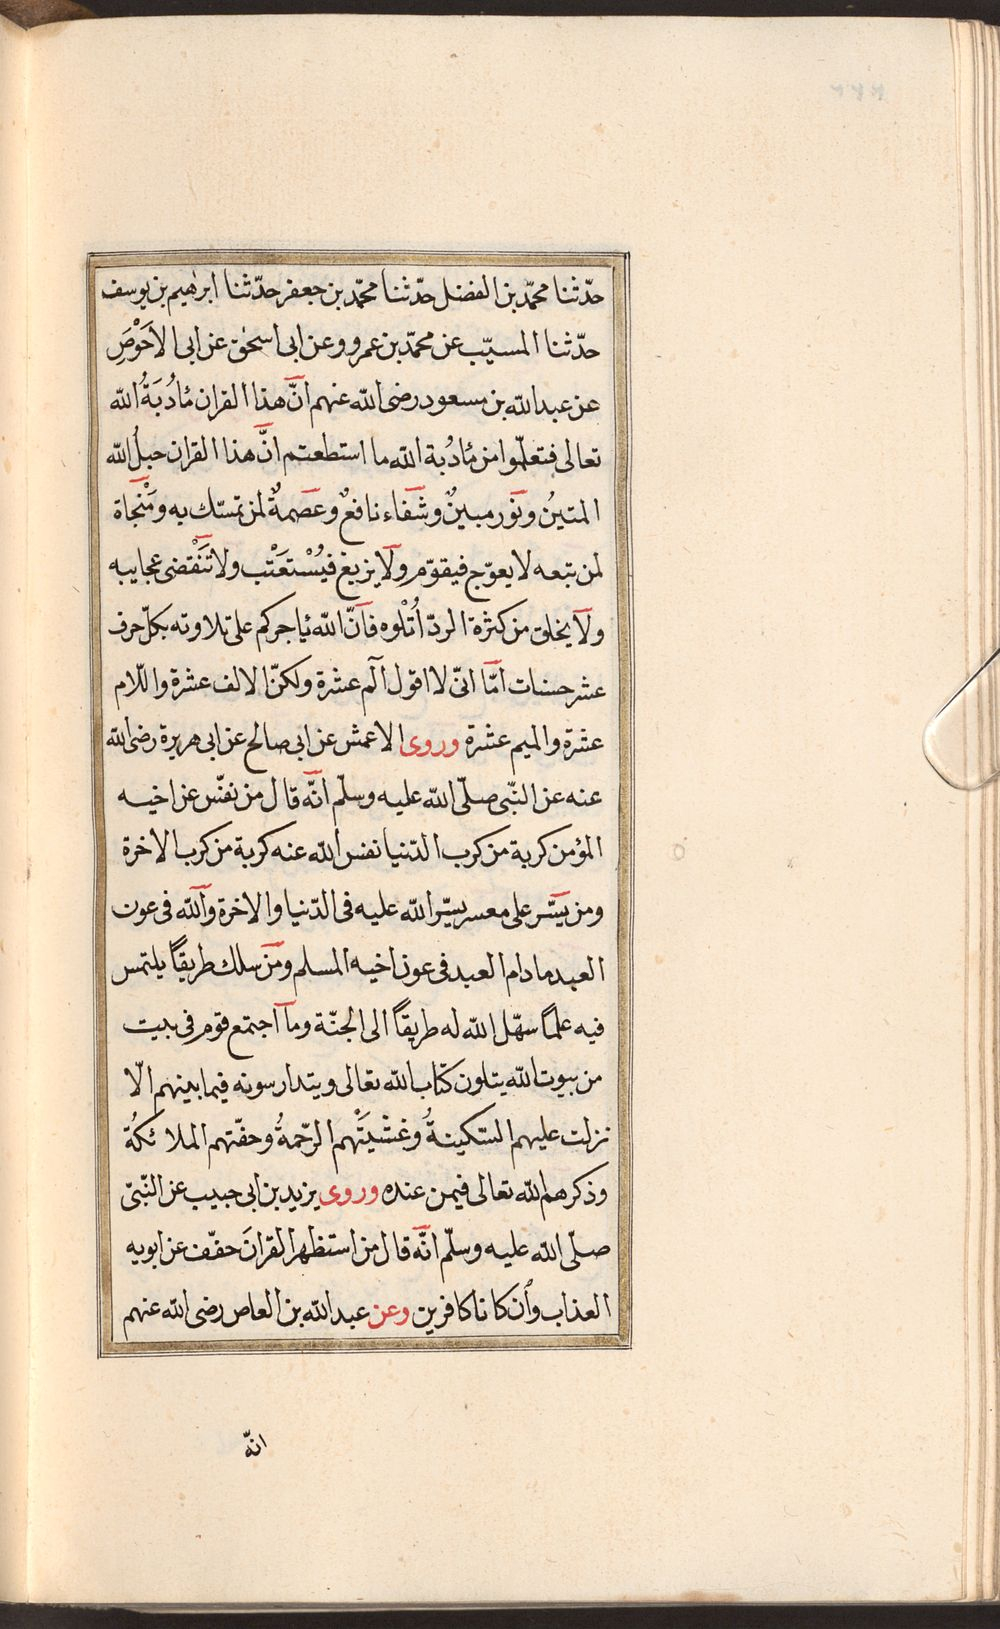 حدّثنا محمّد بن الفضل حدّثنا محمّد بن جعفر حدّثنا ابرٰهيم بن يوسف
حدّثنا المسيّب عن محمّد بن عمرو وعن ابى اسحٰق عن ابى الاَحْوَصِ
عن عبد الله بن مسعود رضى الله عنهم انَّ هذا القران مأدُبَةُ الله
تعالى فتعلّموا من مأدُبة الله ما استطعتم انَّ هذا القران حبلُ الله
المتينُ ونور مبينٌ وشفاء نافعٌ وعصمةٌ لمن تمسّك به ومَنْجاة
لمن تبعه لا يعوّج فيقوّم ولا يزيغ فيُسْتعَتْب ولا تَنْقضى عجايبه
ولا يخلق من كثرة الردّ اُتْلوه فانّ الله يأجركم على تلاوته بكلّ حرف
عشر حسنات امّا انّى لا اقول الٓم عشرة ولكنّ الالف عشرة واللّام
عشرة والميم عشرة وروى الاعمش عن ابى صالح عن ابى هريرة رضى الله
عنه عن النّبى صلّى الله عليه وسلّم انّه قال من نفّس عن اخيه
المؤمن كربة من كرب الدّنيا نفس الله عنه كربة من كرب الاخرة
ومن يسّر على معسر يسّر الله عليه فى الدّنيا والاخرة والله فى عون
العبد مادام العبد فى عون اخيه المسلم ومن سلك طريقاً يلتمس
فيه علماً سهّل الله له طريقاً الى الجنّة وما اجتمع قوم فى بيت
من بيوت الله يتلون كتاب الله تعالى ويتدارسونه فيما بينهم الّا
نزلت عليهم السّكينةُ وغَشيَتْهم الرّحمةُ وحفّتهم الملائكةُ
وذكرهم الله تعالى فيمن عنده وروى يزيد بن ابى حبيب عن النّبىّ
صلّى الله عليه وسلّم انّه قال من استظهر القرانَ خفّف عن ابويه
العذاب وأن كانا كافرين وعن عبد الله بن العاص رضى الله عنهم
انّه